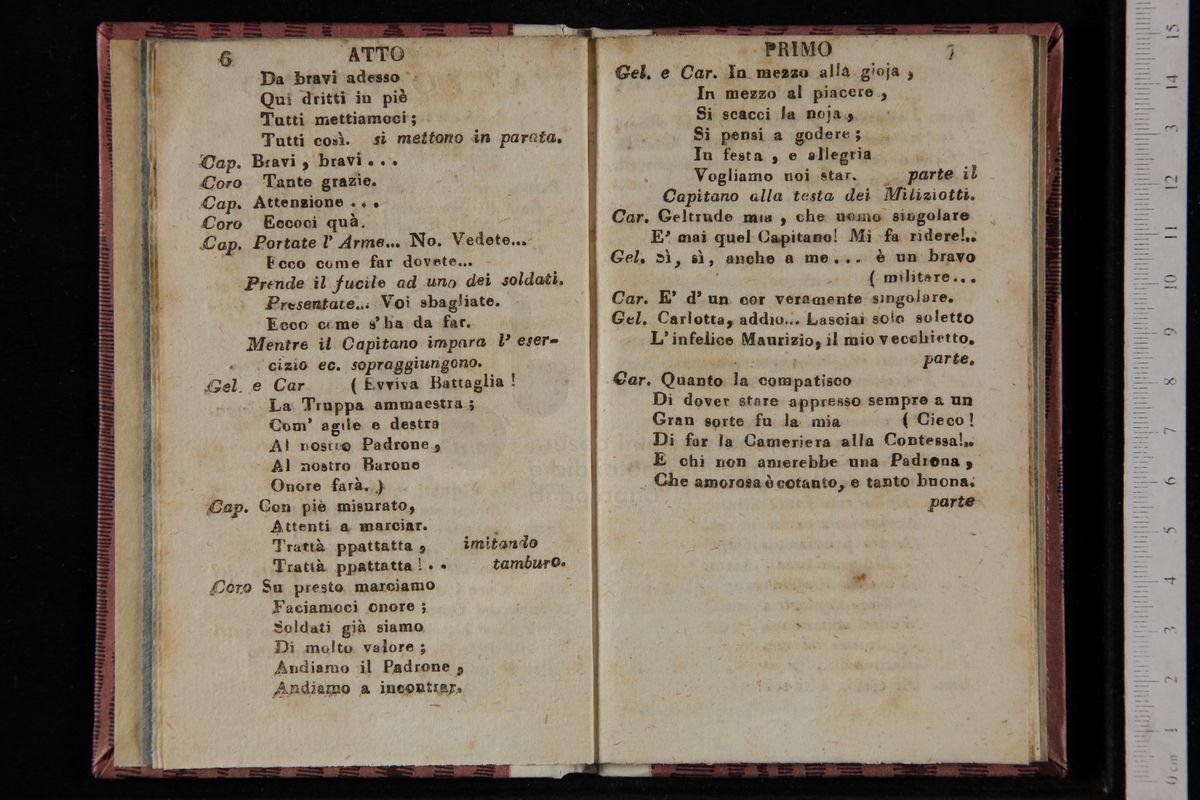 6 ATTO
Da bravi adesso
Qui dritti in piè
Tutti mettiamoci;
Tutti così. si mettono in parata.
Cap. Bravi, bravi...
Coro Tante grazie.
Cap. Attenzione...
Coro Eccoci quà.
Cap. Portate l' Arme... No. Vedete...
Ecco come far dovete...
Prende il fucile ad uno dei soldati.
Presentate... Voi sbagliate.
Ecco come s'ha da far.
Mentre il Capitano impara l' eser-
cizio ec. sopraggiungono.
Gel. e Car (Evviva Battaglia!
La Truppa ammaestra;
Com' agile e destra
Al nostro Padrone,
Al nostro Barone
Onore farà.)
Cap. Con piè misurato,
Attenti a marciar.
Trattà ppattatta, imitando
Trattà ppattatta!.. tamburo.
Coro Su presto marciamo
Faciamoci onore;
Soldati già siamo
Di molto valore;
Andiamo il Padrone,
Andiamo a incontrar.
PRIMO 7
Gel. e Car. In mezzo alla gioja,
In mezzo al piacere,
Si scacci la noja,
Si pensi a godere;
In festa, e allegria
Vogliamo noi star. parte il
Capitano alla testa dei Miliziotti.
Car. Geltrude mia, che uomo singolare
E' mai quel Capitano! Mi fa ridere!..
Gel. Sì, sì, anche a me... è un bravo
(militare...
Car. E' d' un cor veramente singolare.
Gel. Carlotta, addio... Lasciai solo soletto
L'infelice Maurizio, il mio vecchietto.
parte.
Car. Quanto la compatisco
Di dover stare appresso sempre a un
Gran sorte fu la mia (Cieco!
Di far la Cameriera alla Contessa!..
E chi non amerebbe una Padrona,
Che amorosa è cotanto, e tanto buona.
parte